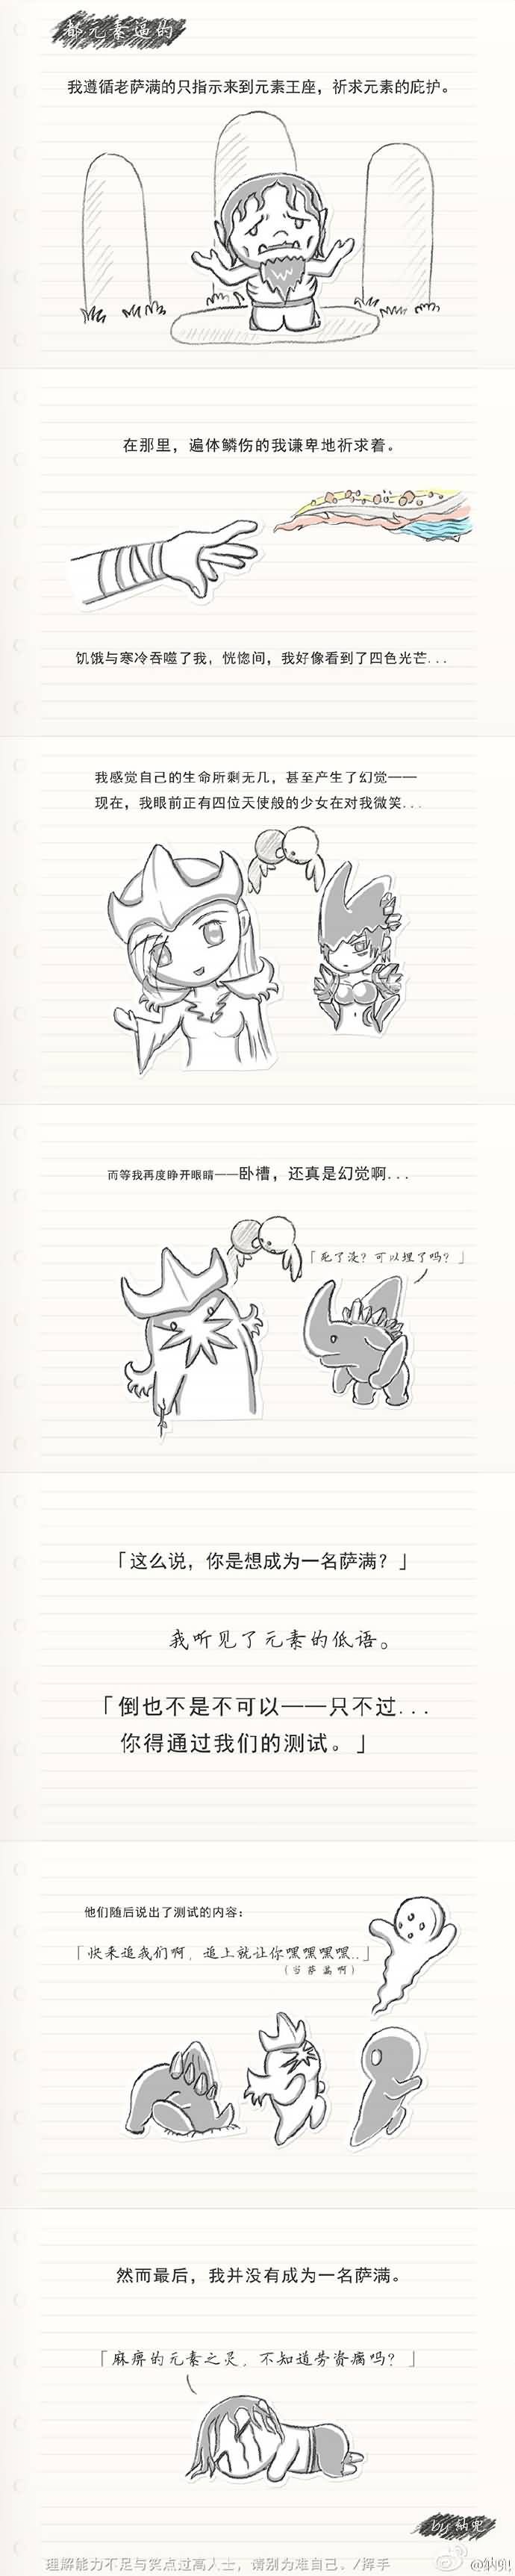 都元素逼的
我遵循老萨满的只指示来到元素王座，祈求元素的庇护。
在那里，遍体鳞伤的我谦卑地祈求着。
饥饿与寒冷吞噬了我，恍惚间，我好像看到了四色光芒...
我感觉自己的生命所剩无几，甚至产生了幻觉——
现在，我眼前正有四位天使般的少女在对我微笑...
而等我再度睁开眼睛——卧槽，还真是幻觉啊...
「死了没？可以埋了吗？」
「这么说，你是想成为一名萨满？」
我听见了元素的低语。
「倒也不是不可以——只不过...
你得通过我们的测试。」
他们随后说出了测试的内容：
「快来追我们啊，追上就让你嘿嘿嘿嘿..」
（当萨满啊）
然而最后，我并没有成为一名萨满。
「麻痹的元素之灵，不知道劳资瘸吗？」
by 纳兜
理解能力不足与笑点过高人士，请别为难自己。/挥手
@纳兜